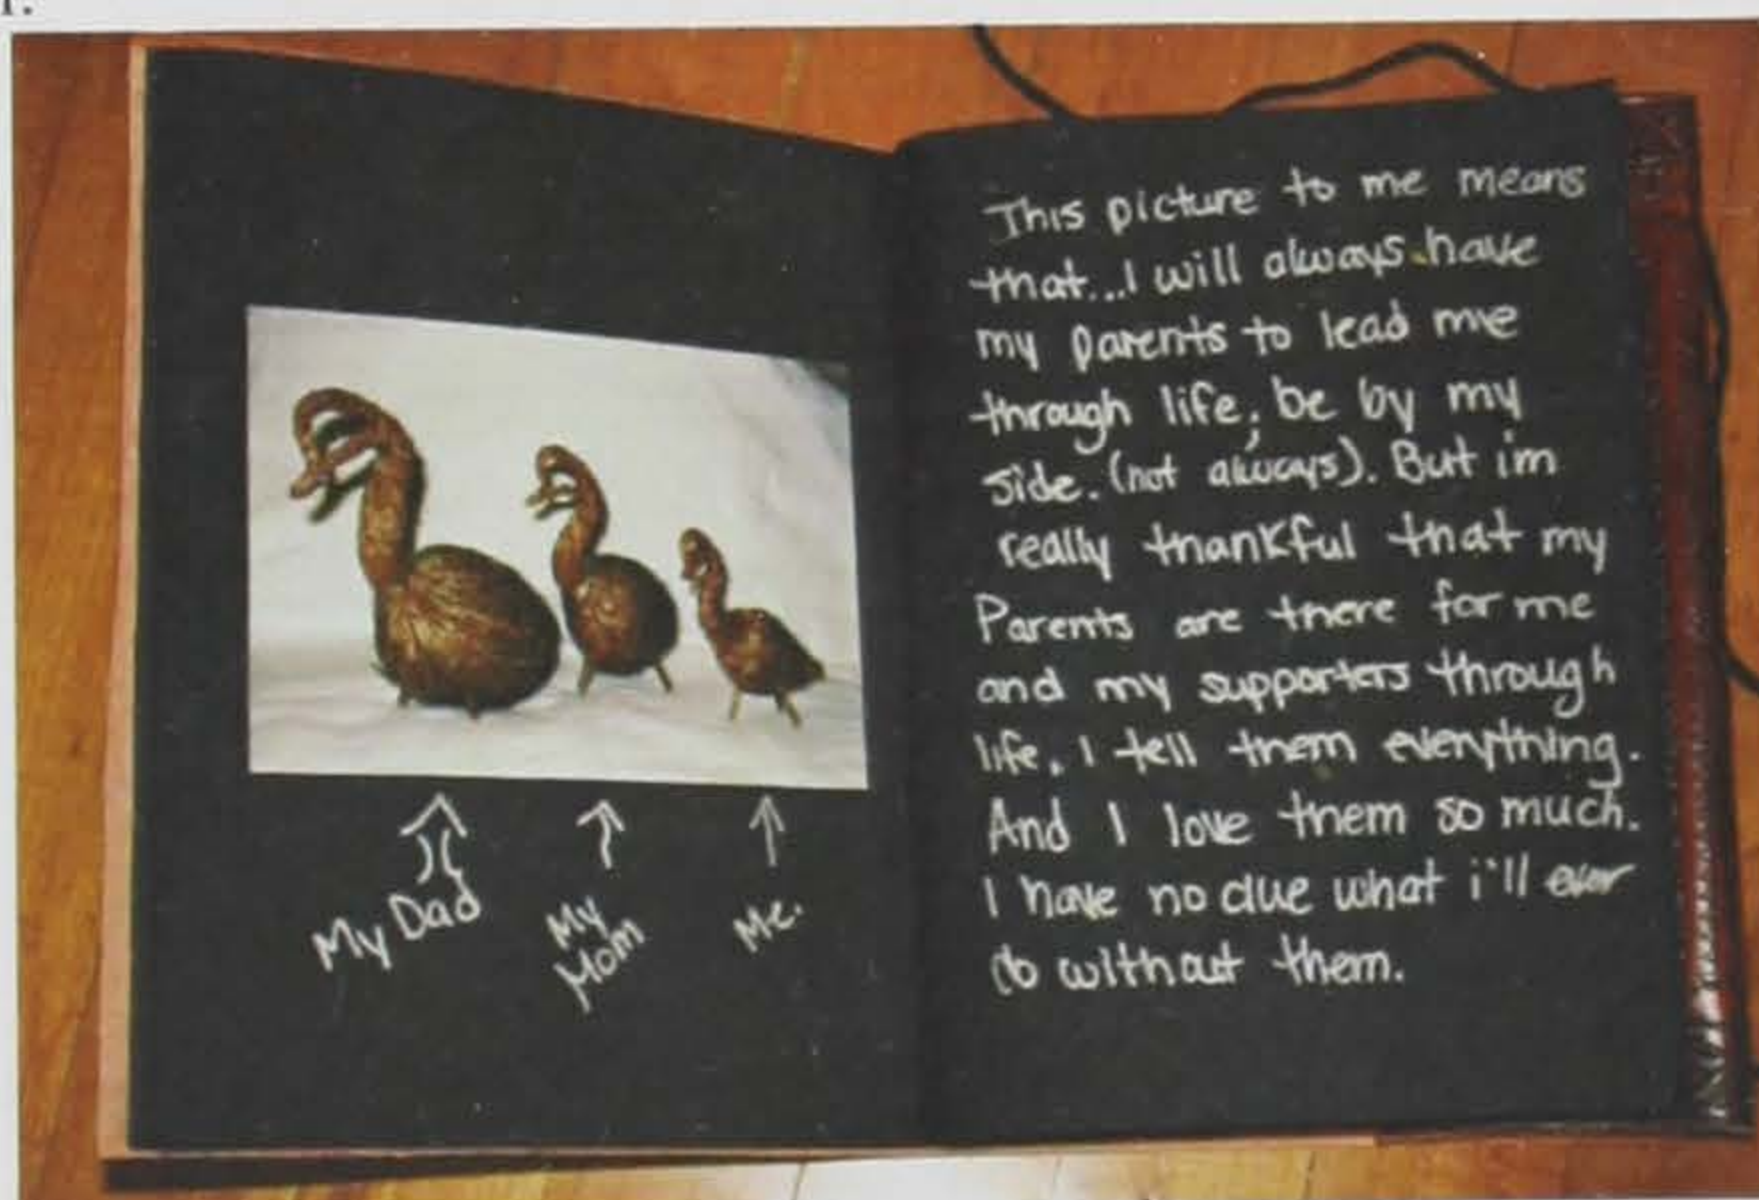 My Dad
My
Mom
Me.
This picture to me means
that...I will always have
my parents to lead me
through life, be by my
side. (not always). But im
really thankful that my
Parents are there for me
and my supporters through
life, I tell them everything.
And I love them so much.
I have no clue what i'll ever
do without them.